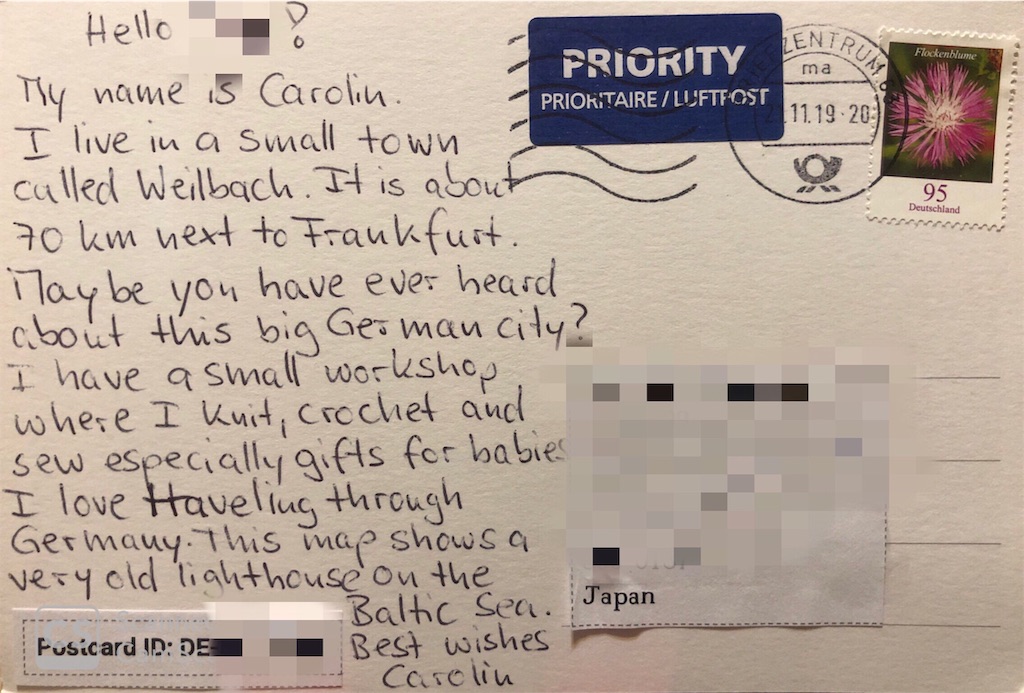 Hello !
My name is Carolin.
I live in a small town
called Weilbach. It is about
70 km next to Frankfurt.
Maybe you have ever heard
about this big German city?
I have a small workshop
where I knit, crochet and
sew especially gifts for babies
I love traveling through
Germany. This map shows a
very old lighthouse on the
Baltic Sea.
Best wishes
Carolin
Postcard ID: DE-
PRIORITY
PRIORITAIRE / LUFTPOST
ZENTRUM
ma
.11.19-20
Flockenblume
95
Deutschland
Japan